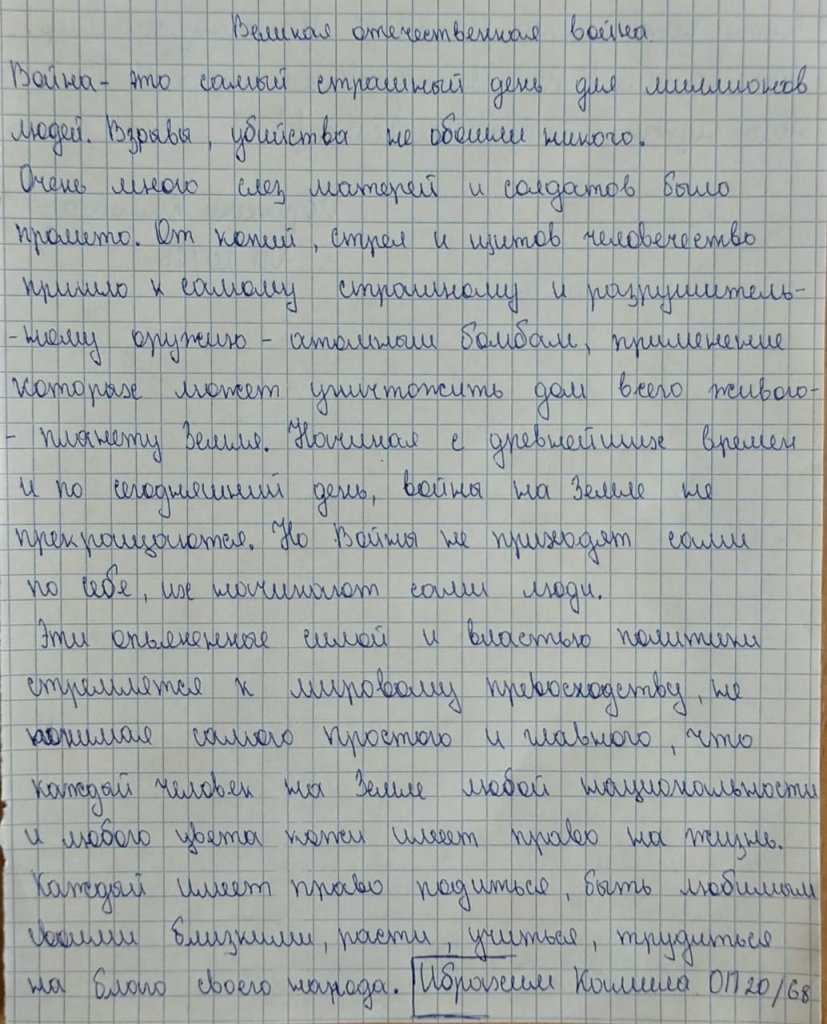 Великая отечественная война
Война - это самый страшный день для миллионов
людей. Взрывы, убийства не обошли никого.
Очень много слез матерей и солдатов было
пролито. От копий, стрел и щитов человечество
пришло к самому страшному и разрушитель-
-ному оружию - атомным бомбам, применение
которых может уничтожить дом всего живого-
- планету Земля. Начиная с древнейших времен
и по сегодняшний день, войны на Земле не
прекращаются. Но Войны не приходят сами
по себе, их начинают сами люди.
Эти опьяненные силой и властью политики
стремлятся к мировому превосходству, не
понимая самого простого и главного, что
каждый человек на Земле любой национальности
и любого цвета кожи имеет право на жизнь.
Каждый имеет право родиться, быть любимым
своими близкими, расти, учиться, трудиться
на благо своего народа. Ибрахим Камила ОП 20/68